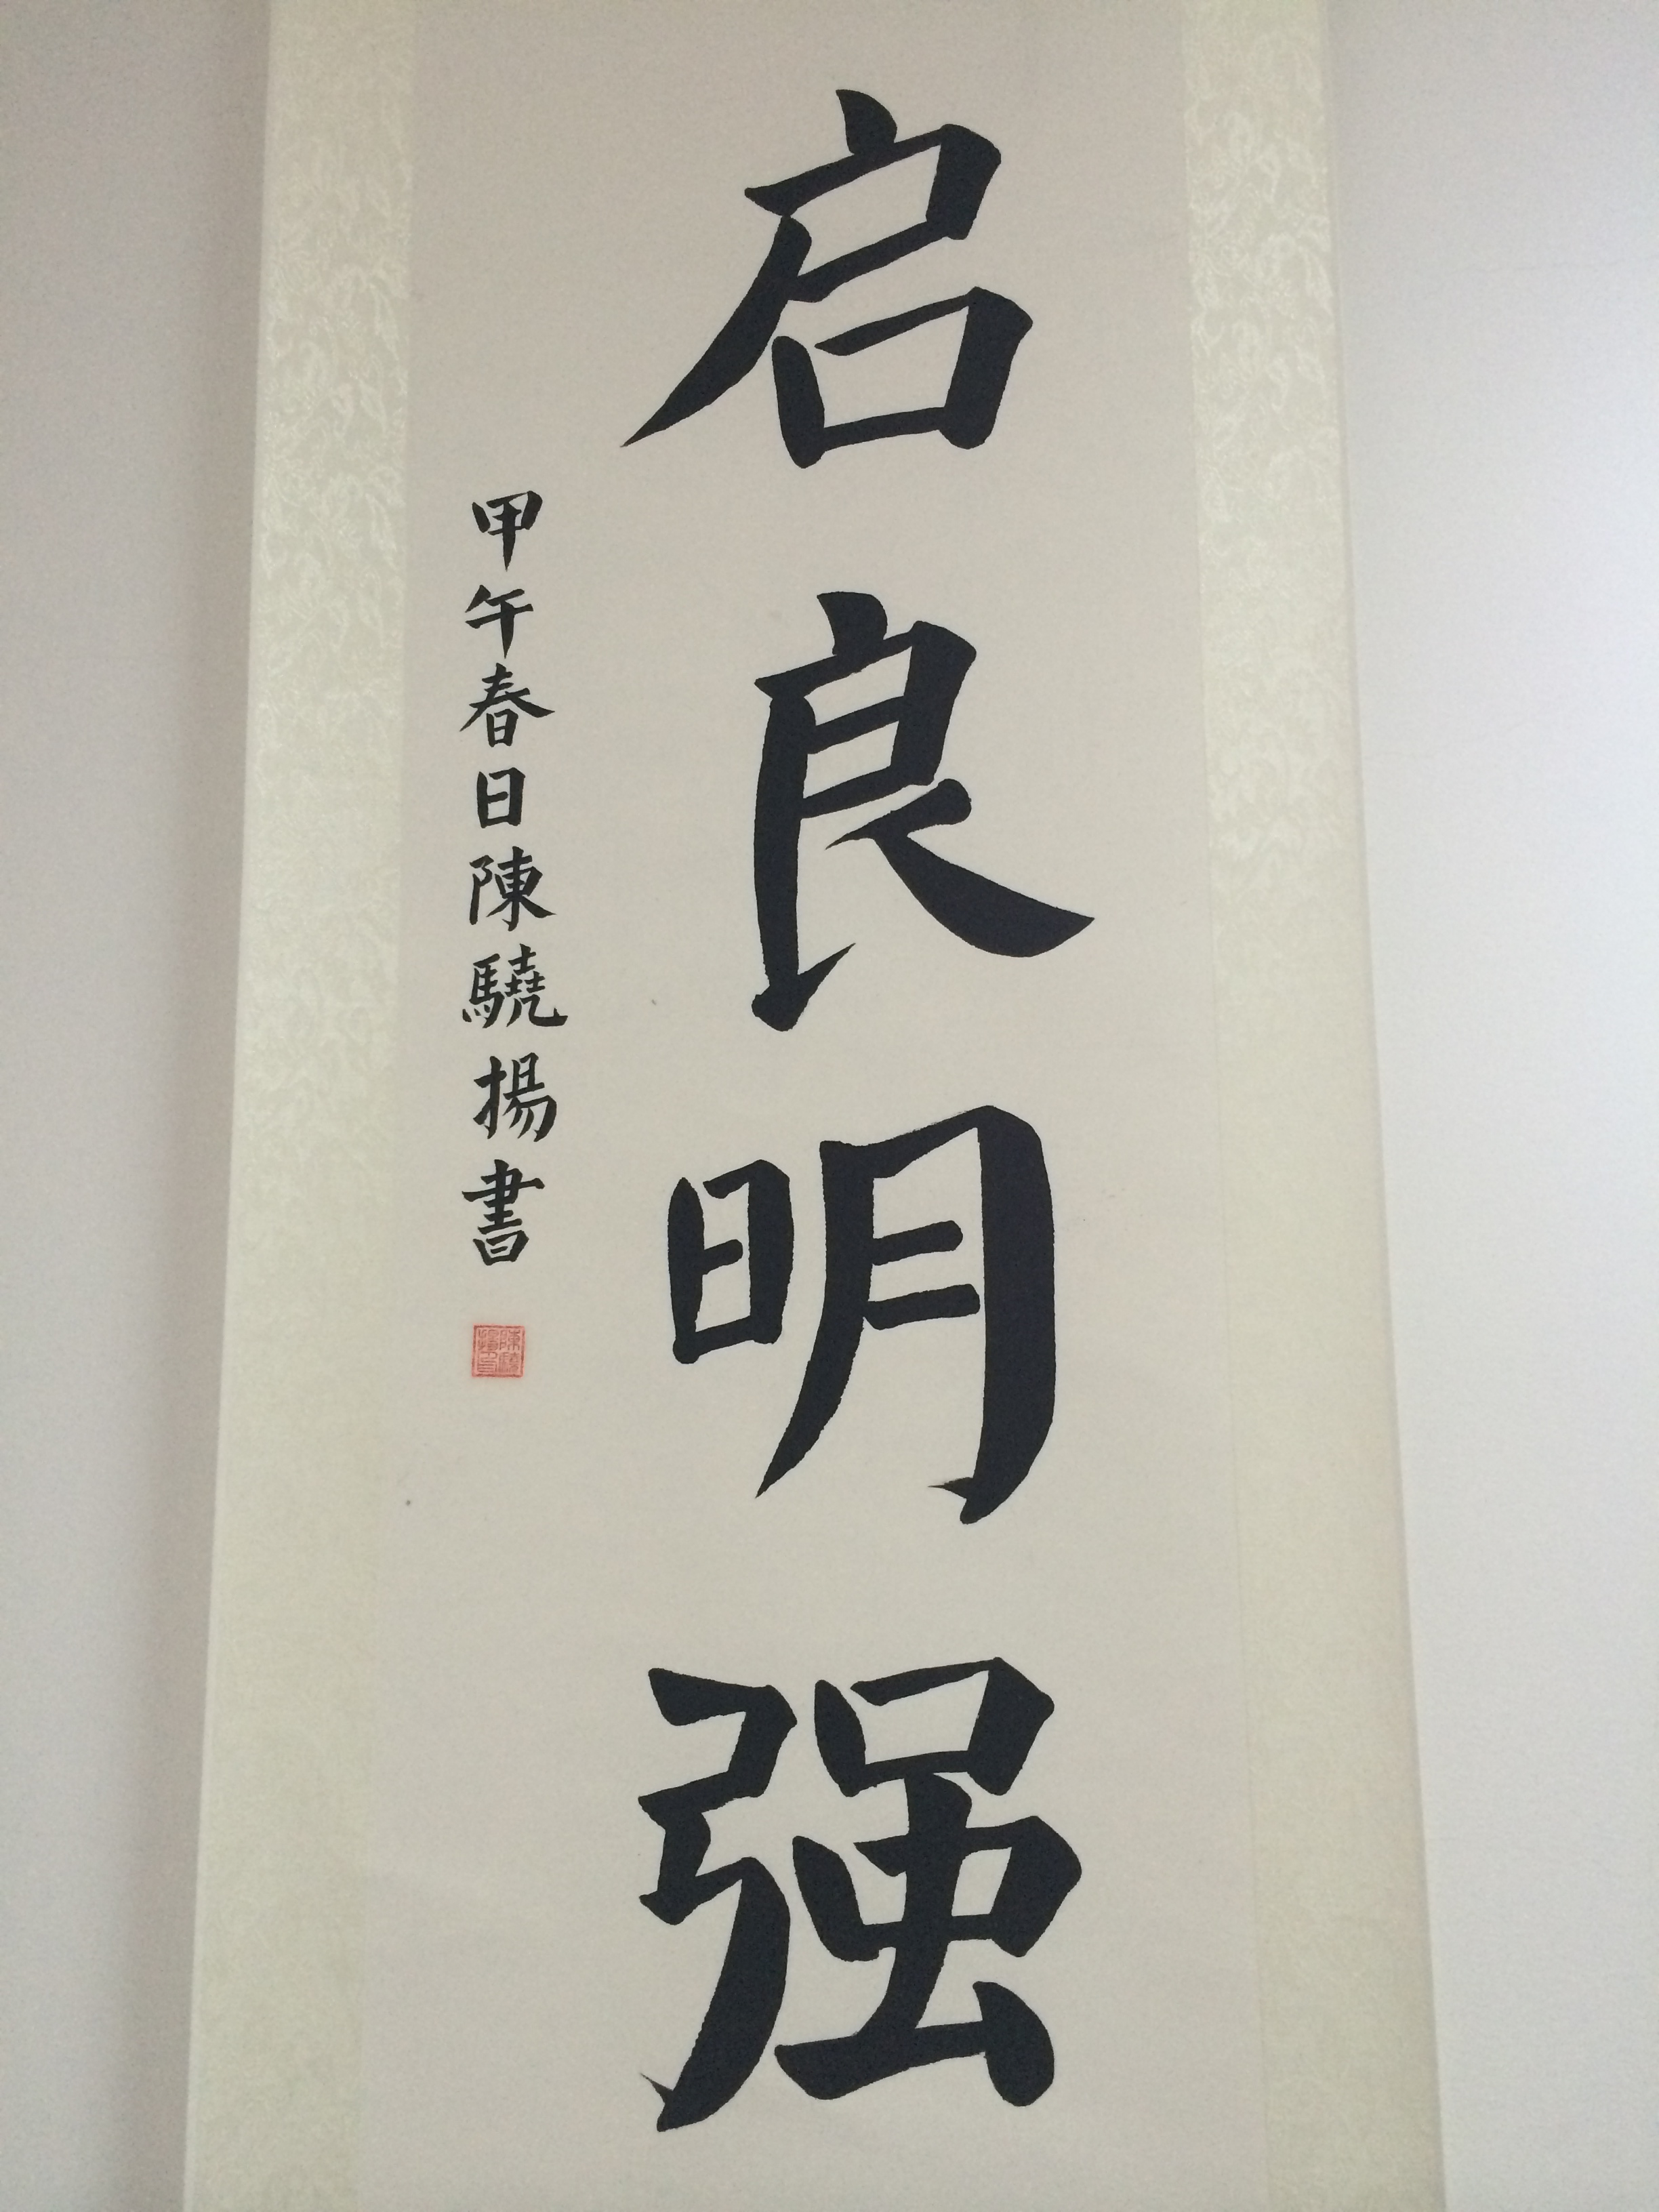 启良明强
甲午春日陳驍揚書